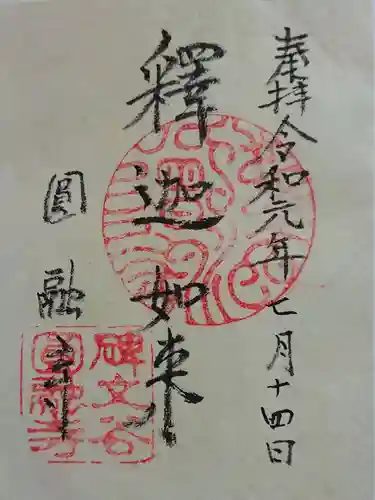 奉拝 令和元年七月十四日
釋迦如来
圓融寺
碑文谷
圓融寺